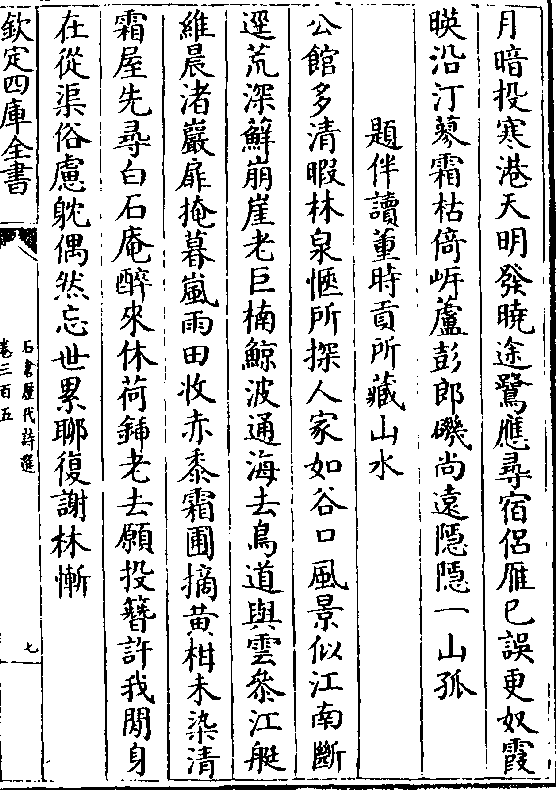 月暗投寒港天明發曉途鷺應尋宿侶雁已誤更奴霞
暎沿汀蓼霜枯倚岍蘆彭郎磯尚遠隱隱一山孤
題伴讀董時貢所藏山水
公館多清暇林泉愜所探人家如谷口風景似江南斷
逕荒深蘚崩崖老巨楠鯨波通海去鳥道與雲叅江艇
維晨渚巖扉掩暮嵐雨田收赤黍霜圃摘黄柑未染清
霜屋先尋白石庵醉來休荷鍤老去願投簮許我閒身
在從渠俗慮躭偶然忘世累聊復謝林慚
欽定四庫全書
石倉歷代詩選
卷三百五
七